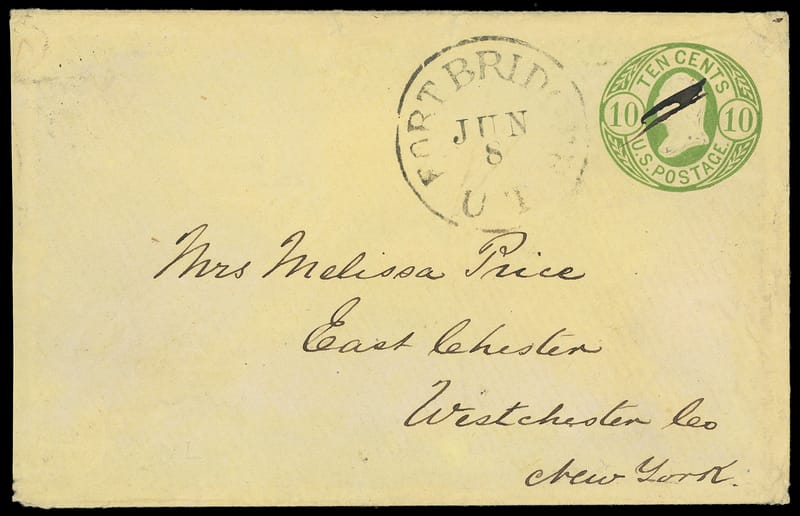 FORT BRIDGER
JUN
8
U T
TEN CENTS
10 10
U.S. POSTAGE.
Mrs Melissa Price
East Chester
Westchester Co
New York.